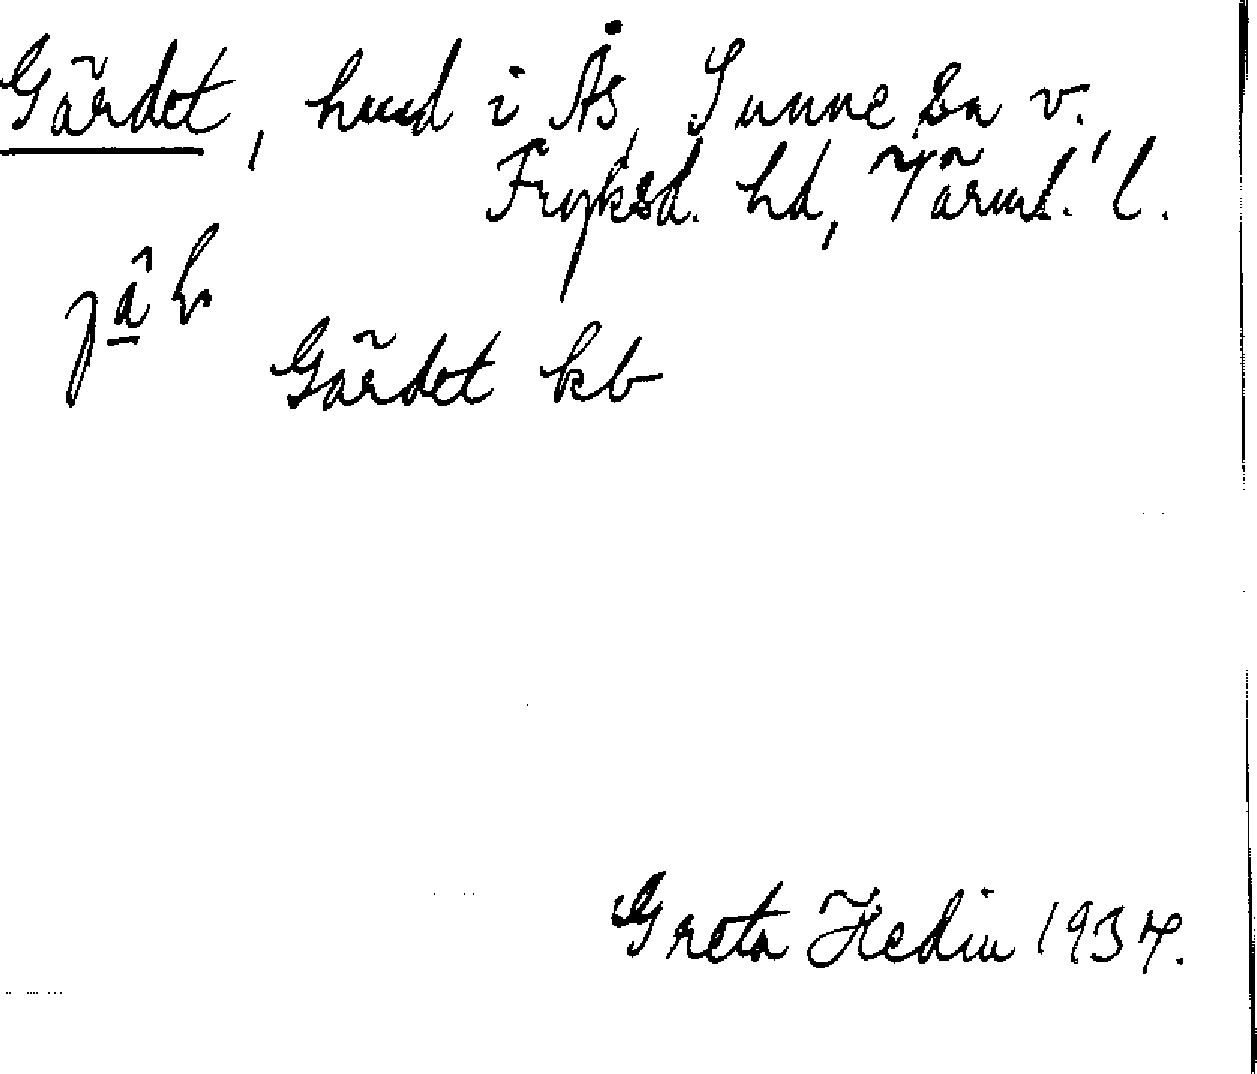 Gärdet, husd i Ås, Sunne sn v.
Fryksd. hd, Värml. l.
Gärdet kb
Greta Hedin 1934.